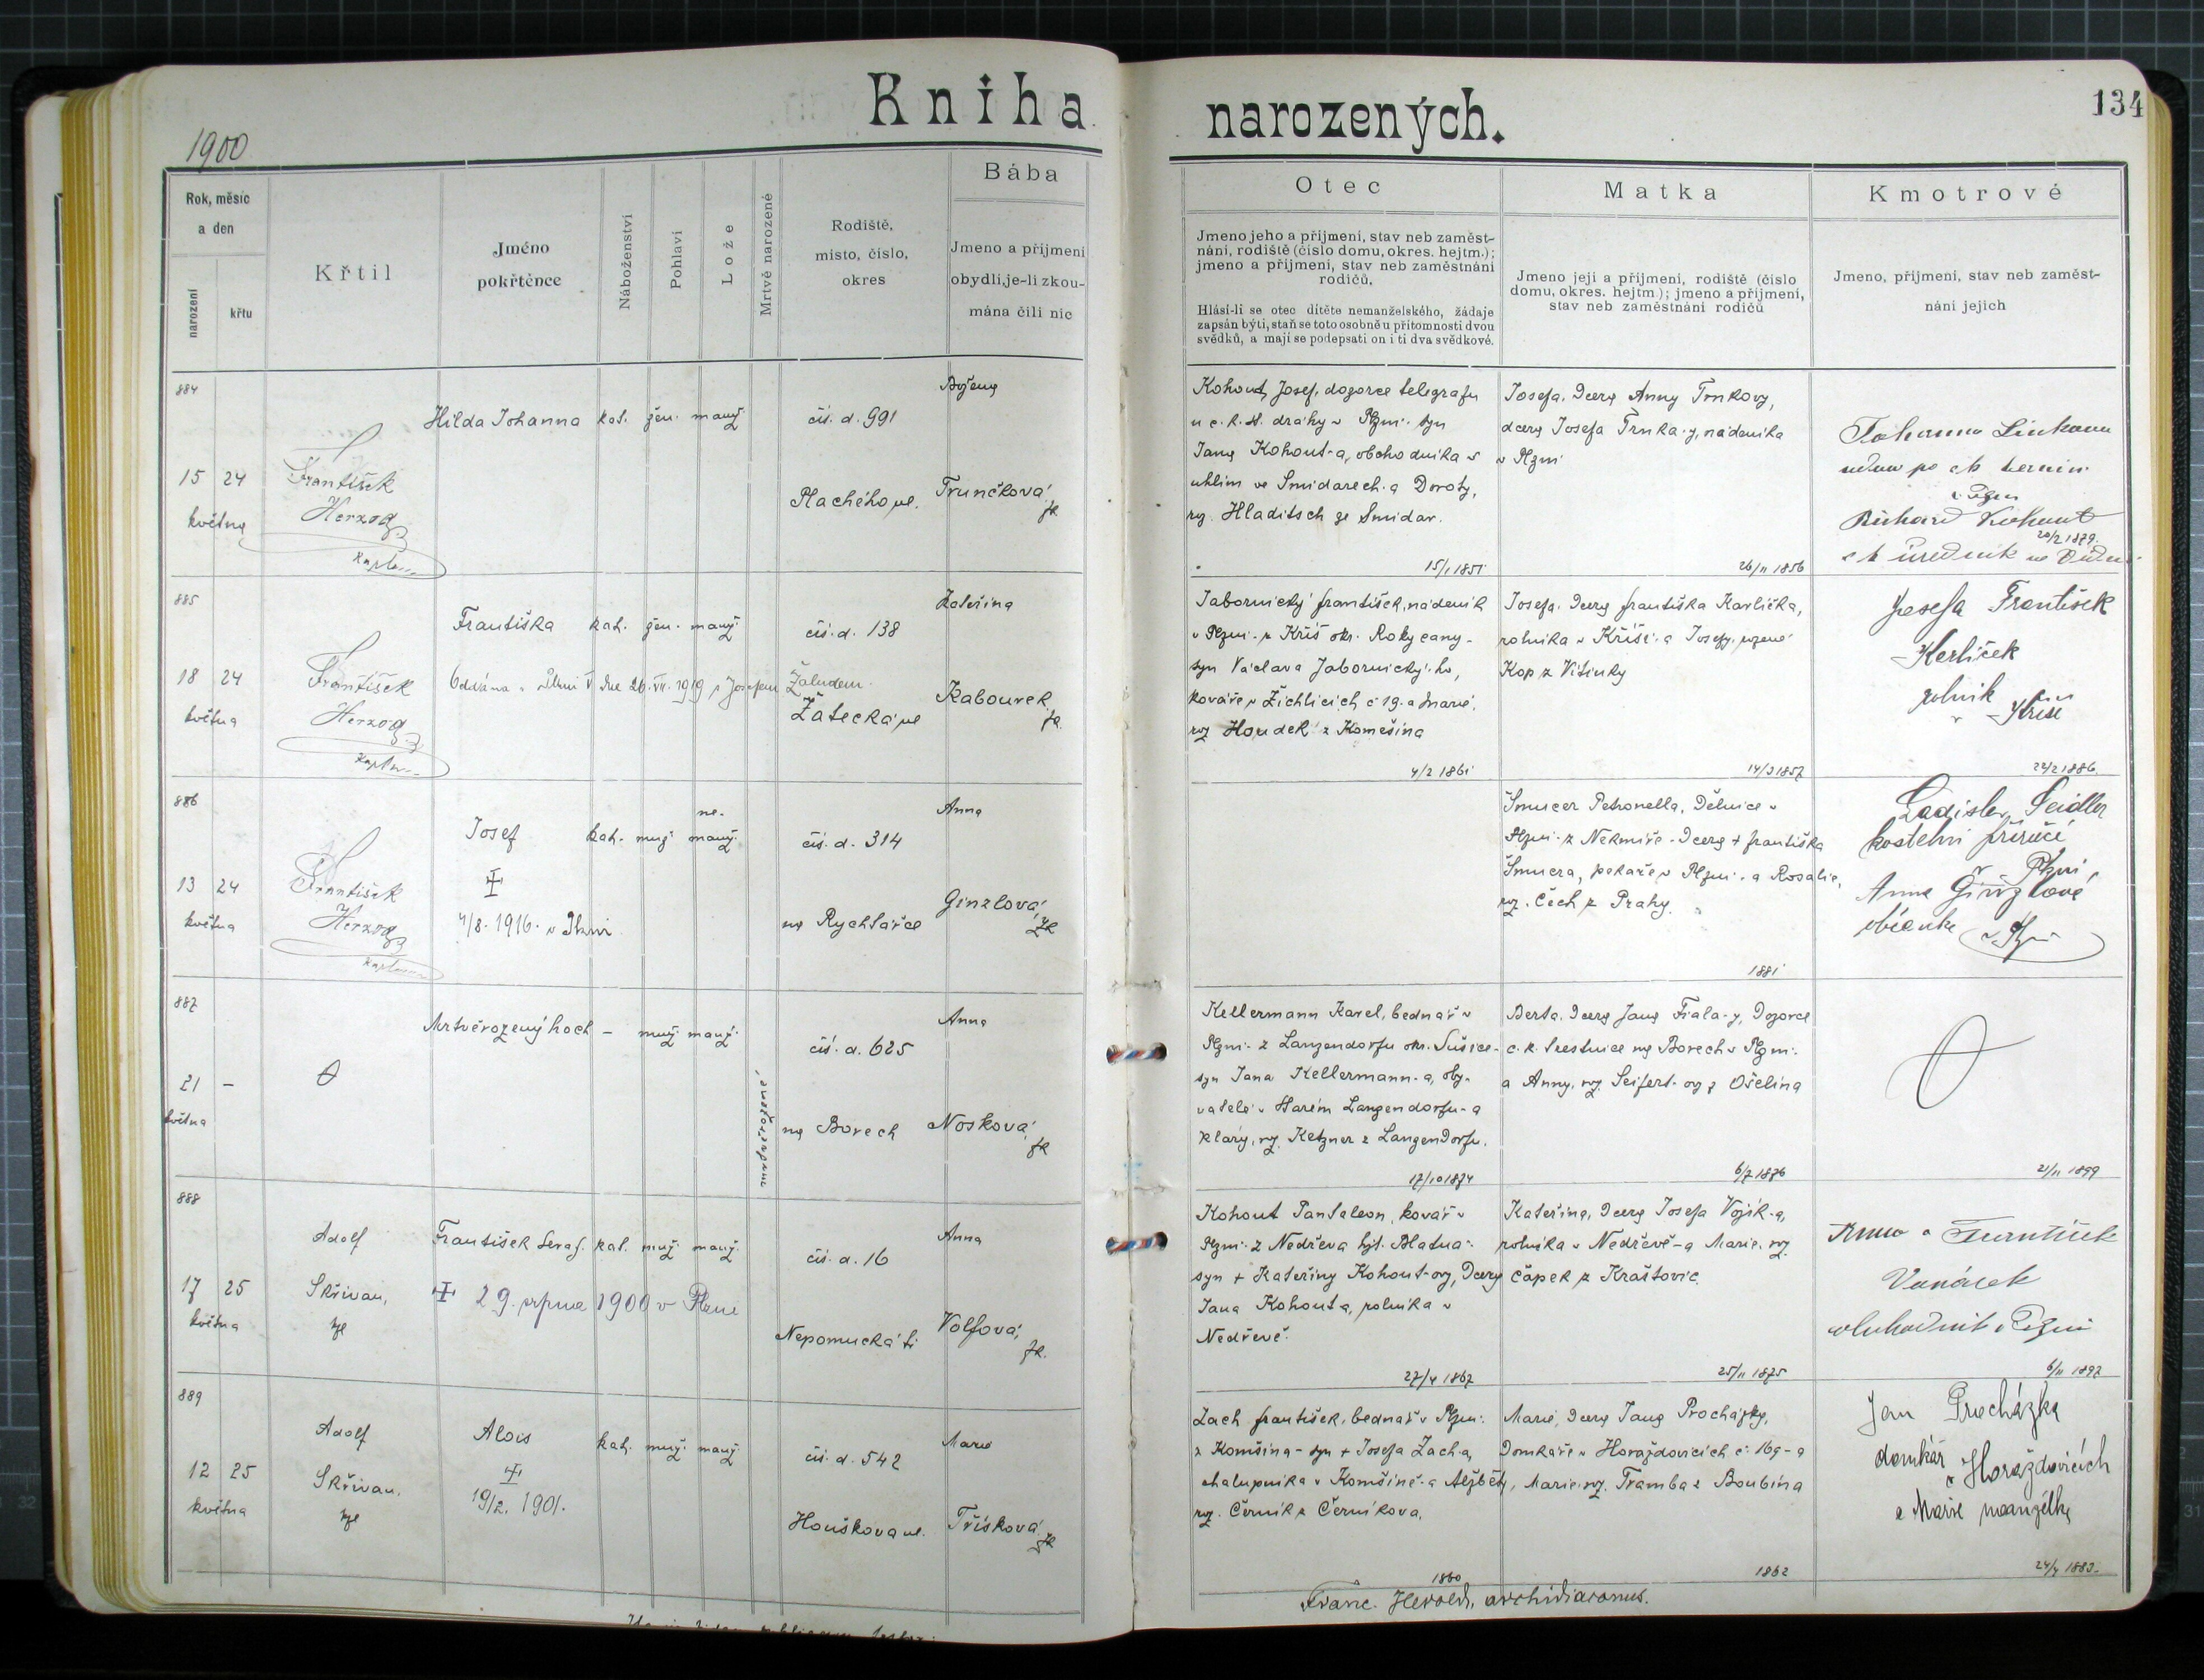 Kniha narozených.
134
1900
Rok, měsíc
a den
narození
křtu
Křtil
Jméno
pokřtěnce
Náboženství
Pohlaví
Lože
Mrtvě narozené
Rodiště,
místo, číslo,
okres
Bába
Jmeno a příjmení
obydlí, je-li zkou-
mána čili nic
Otec
Jmeno jeho a příjmení, stav neb zaměst-
nání, rodiště (číslo domu, okres. hejtm.);
jmeno a příjmení, stav neb zaměstnání
rodičů.
Hlásí-li se otec dítěte nemanželského, žádaje
zapsán býti, staň se toto osobně u přítomnosti dvou
svědků, a mají se podepsati on i ti dva svědkové.
Matka
Jmeno její a příjmení, rodiště (číslo
domu, okres. hejtm.); jmeno a příjmení,
stav neb zaměstnání rodičů
Kmotrové
Jmeno, příjmení, stav neb zaměst-
nání jejich
884
15 24
května
František
Herzog
kaplan
Hilda Johanna kat. žen. manž.
čís. d. 991
Plachého ul.
Božena
Trunčková,
zk.
Kohout, Josef, dozorce telegrafu
u c. k. st. dráhy v Plzni. syn
Jana Kohout-a, obchodníka s
uhlím ve Smidarech a Doroty,
roz. Hladitsch ze Smidar.
15/1 1851
Josefa, dcera Anny Trnkovy,
dcery Josefa Trnka-y, nádeníka
v Plzni
26/11 1856
Johanna
v Plzni
Richard Kohout
20/2 1879.
c k úředník ve Vídni
885
18 24
května
František
Herzog
kaplan
Františka kat. žen. manž.
Oddána v Plzni dne 26. VII. 1919 s Josefem Žaludem.
čís. d. 138
Žatecká ul
Kateřina
Kabourek,
zk.
Jabornický František, nádeník
v Plzni z Kříš okr. Rokycany-
syn Václava Jabornický-ho,
kováře v Žichlicích č 19. a Marie,
roz Houdek z Komešína
4/2 1861
Josefa, dcera Františka Karlíčka,
rolníka v Kříši a Josefy, rozené
Kop z Vitinky
14/3 1857
Josefa František
Kerlíček
rolník
v Kříši
22/2 1886.
886
13 24
května
František
Herzog
kaplan
Josef kat. muž. ne-
manž.
4/8. 1916. v Plzni
čís. d. 314
na Rychtářce
Anna
Ginzlová,
zk
Šmucer Petronella, dělnice v
Plzni z Nekmíře - dcera + Františka
Šmucra, pekaře v Plzni a Rosalie,
roz. Čech z Prahy.
1881
Ladislav Seidler
kostelní příručí
Plzni,
Anna Ginzlová
občanka v Plzni
887
21 –
května
Mrtvěrozený hoch – muž. manž.
mrtvěrozené
čís. d. 625
na Borech
Anna
Nosková,
zk
Kellermann Karel, bednář v
Plzni z Langendorfu okr. Sušice-
syn Jana Kellermann-a, oby-
vatele v Starém Langendorfu a
Kláry, roz. Ketzner z Langendorfu.
17/10 1874
Berta, dcera Jana Fiala-y, dozorce
c. k. trestnice na Borech v Plzni
a Anny, roz. Seifert-ovy z Ošelína
6/7 1876
21/11 1899
888
17 25
května
Adolf
Skřivan,
František Seraf. kat. muž. manž.
29. srpna 1900 v Plzni
čís. d. 16
Nepomucká tř.
Anna
Volfová,
zk.
Kohout Pantaleon, kovář v
Plzni z Nedřeva hjt. Blatna-
syn + Kateřiny Kohout-ovy, dcery
Jana Kohouta, rolníka v
Nedřevě.
27/4 1867
Kateřina, dcera Josefa Vojík-a,
rolníka v Nedřevě a Marie, roz.
Čapek z Kraštovic.
25/11 1875
Anna a František
Vanásek
obchodník v Plzni
6/11 1897
889
12 25
května
Adolf
Skřivan,
Alois kat. muž. manž.
19/2. 1901.
čís. d. 542
Houškova ul.
Marie
Třísková,
zk
Zach František, bednář v Plzni
z Komšína - syn + Josefa Zach-a,
chalupníka v Komšíně a Alžběty,
roz. Černík z Černíkova.
1860
Marie, dcera Jana Procházky,
domkáře v Horažďovicích č. 169 - a
Marie, roz. Tramba z Boubína
1862
Jan Procházka
domkář
v Horažďovicích
a Marie manželka
24/4 1883.
Franc. Herold, archidiaconus.